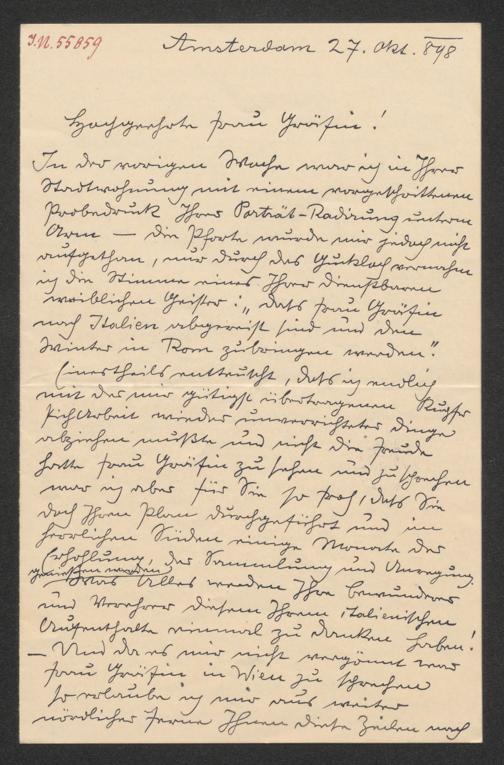 I.N. 55859
Amsterdam 27. Okt. 898
Hochgeehrte Frau Gräfin!
In der vorigen Woche war ich in Ihrer
Stadtwohnung mit einem vorgeschrittenen
Probedruck Ihrer Porträt-Radirung unterm
Arm — die Pforte wurde mir jedoch nicht
aufgethan, nur durch das Gukloch vernahm
ich die Stimme eines Ihrer dienstbaren
weiblichen Geister: „dass Frau Gräfin
nach Italien abgereist sind und den
Winter in Rom zubringen werden."
Einestheils enttäuscht, dass ich endlich
mit der mir gütigst übertragenen Kupfer
Stich Arbeit wieder unverrichteter Dinge
abziehen mußte und nicht die Freude
hatte Frau Gräfin zu sehen und zu sprechen
war ich aber für Sie so froh, dass Sie
doch Ihren Plan durchgeführt und im
herrlichen Süden einige Monate der
Erhohlung, der Sammlung und Anregung
genießen werden.
Was Alles werden Ihre Bewunderer
und Verehrer diesem Ihrem italienischen
Aufenthalte einmal zu danken haben!
— Und da es mir nicht vergönnt war
Frau Gräfin in Wien zu sprechen
so erlaube ich mir aus weiter
nördlicher Ferne Ihnen diese Zeilen nach